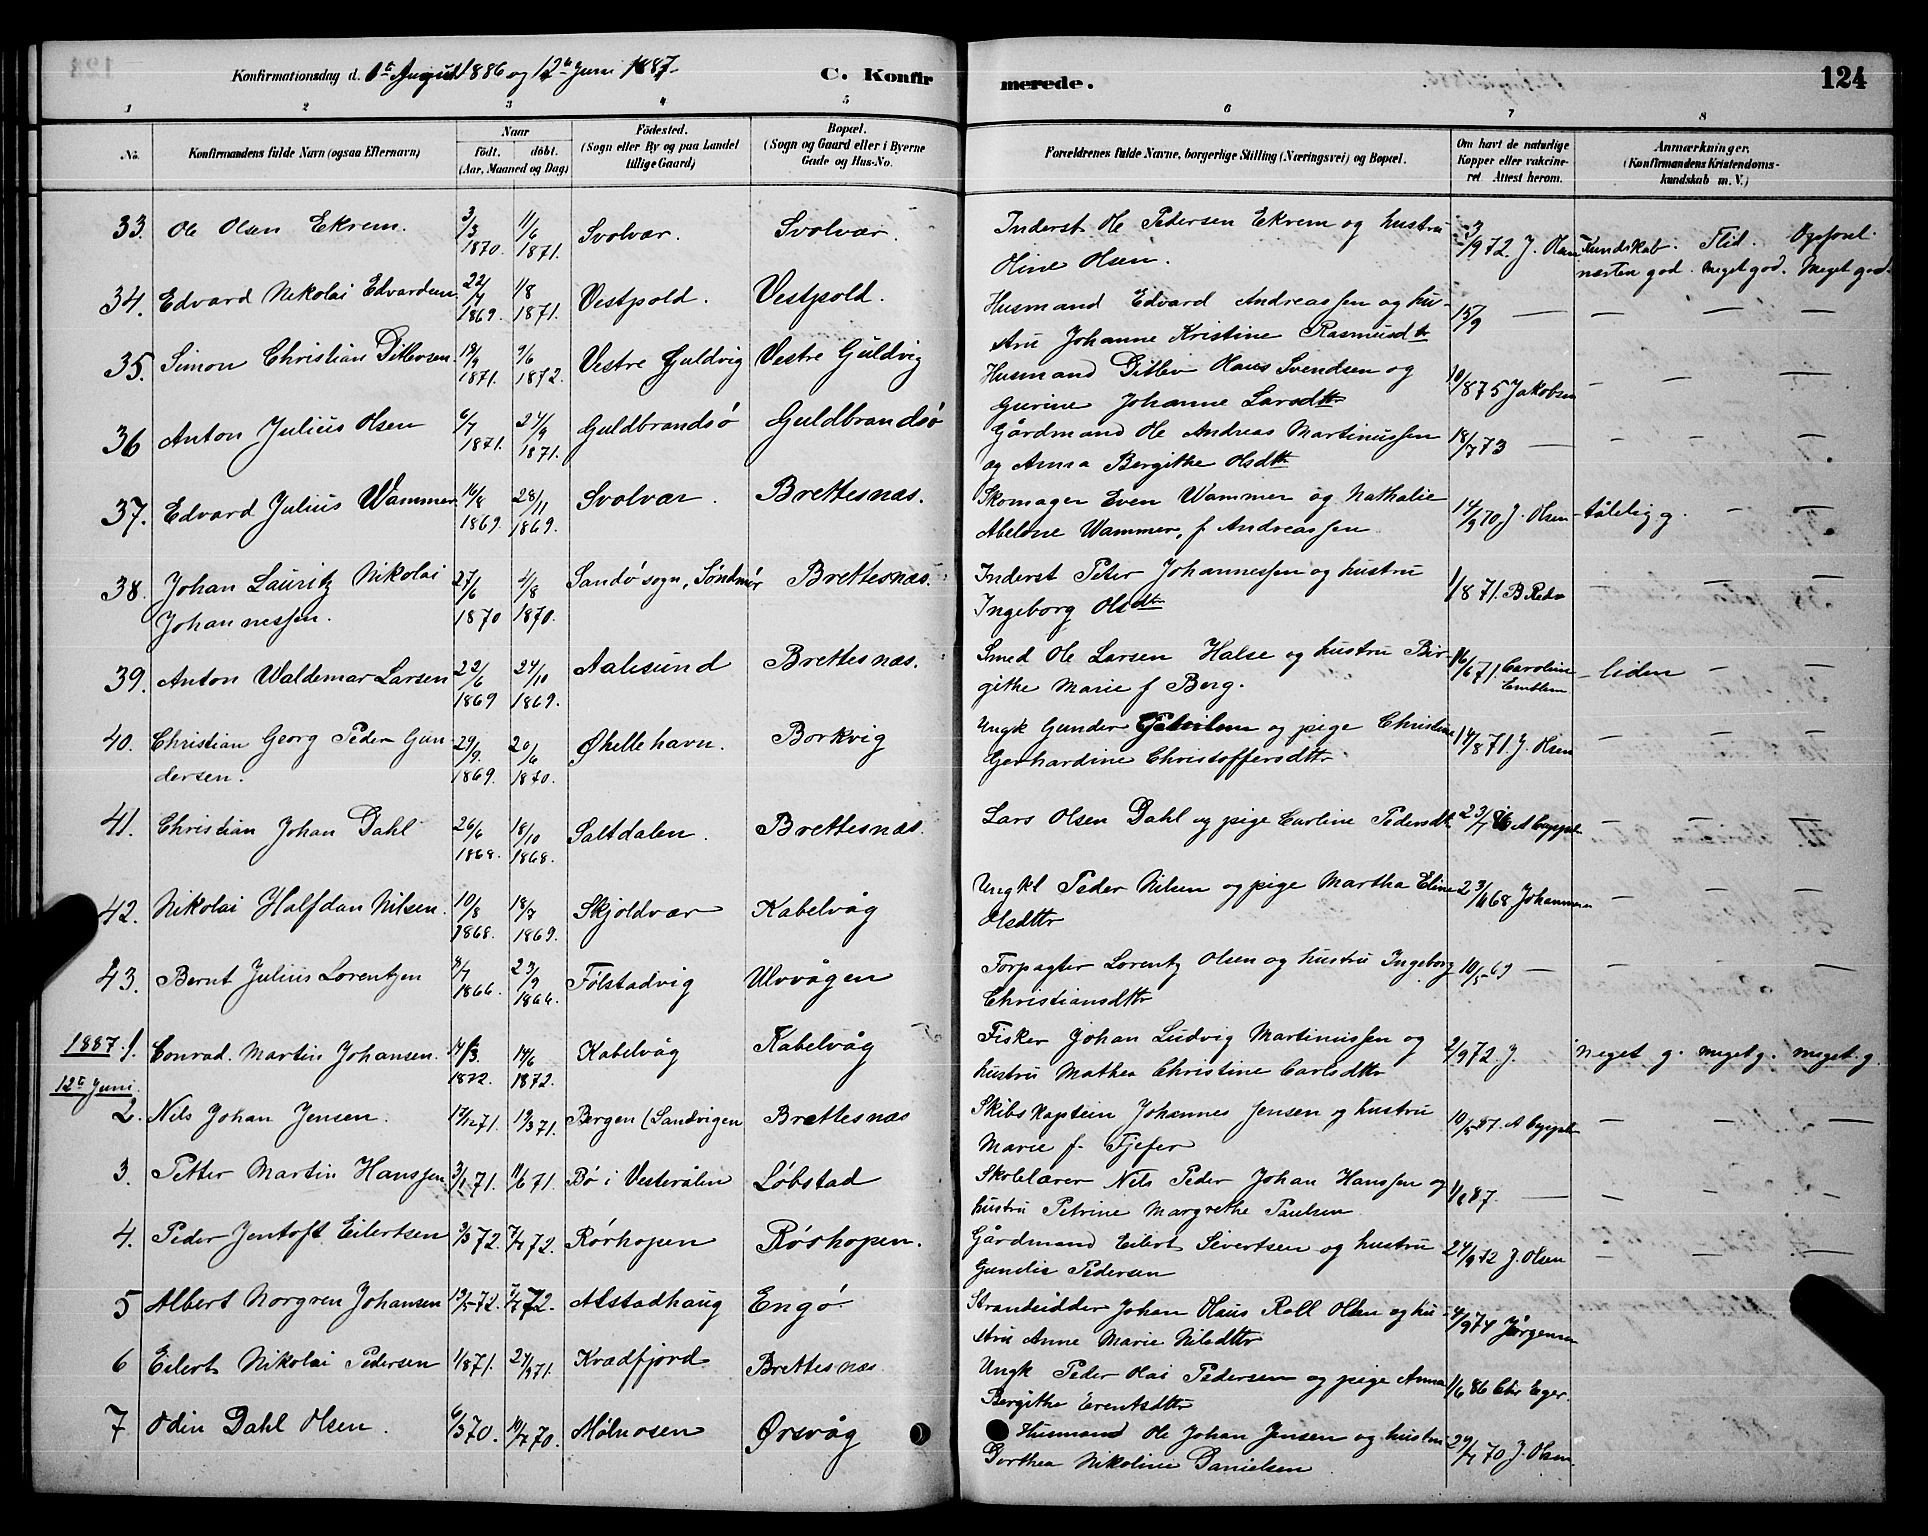 Konfirmationsdag d. 1te August 1886 og 12te Juni 1887. C. Konfirmerede. 124
1 2 3 4 5 6 7 8
No. Konfirmandens fulde Navn (ogsaa Efternavn) Naar födt. döbt. (Aar, Maaned og Dag) Födested. (Sogn eller By og paa Landet tillige Gaard) Bopæl. (Sogn og Gaard eller i Byerne Gade og Hus-No. Forældrenes fulde Navne, borgerlige Stilling (Næringsvei) og Bopæl. Om havt de naturlige Kopper eller vakcineret. Attest herom. Anmærkninger. (Konfirmandens Kristendomskundskab m. V.)
33. Ole Olsen Ekrem. 3/3 1870. 11/6 1871. Svolvær. Svolvær. Inderst Ole Pedersen Ekrem og hustru Oline Olsen. 3/9 72. J. Olsen Kundskab. næsten god. Flid. meget god. Opførsel. Meget god.
34. Edvard Nikolai Edvardsen 22/7 1869. 1/8 1871. Vestpold. Vestpold. Husmand Edvard Andreassen og hustru Johanne Kristine Rasmusdtr 15/9 — — — —
35. Simon Christian Ditlevsen 19/9 1871. 9/6 1872. Vestre Guldvig Vestre Guldvig Husmand Ditlev Hans Svendsen og Gurine Johanne Larsdtr 10/8 75 Jakobsen — — —
36 Anton Julius Olsen 6/7 1871. 24/9 1871. Guldbrandsö Guldbrandsö Gårdmand Ole Andreas Martinussen og Anna Bergithe Olsdtr 18/7 73 — — — —
37. Edvard Julius Wammer 16/8 1869. 28/11 1869. Svolvær. Brettesnæs. Skomager Even Wammer og Nathalie Abelone Wammer, f Andreassen 14/9 70, J. Olsen tålelig g. — —
38. Johan Lauritz Nikolai Johannessen. 27/6 1870 4/8 1870. Sandö sogn, Söndmör Brettesnæs. Inderst Peter Johannessen og hustru Ingeborg Olsdtr 1/8 71. — — —
39. Anton Waldemar Larsen 22/6 1869 24/10 1869. Aalesund Brettesnæs. Smed Ole Larsen Halse og hustru Birgithe Marie f Berg. 16/6 71. Caroline Emblem liden — —
40. Christian Georg Peder Gundersen. 29/9. 1869. 20/6 1870. Øhellehavn. Borkvig Ungk Gunder og pige Christine Gerhardine Christoffersdtr 14/8 71. J. Olsen — — —
41. Christian Johan Dahl 26/6 1868. 18/10 1868. Saltdalen. Brettesnæs. Lars Olsen Dahl og pige Carline Pedersdtr 23/7 86 — — —
42. Nikolai Halfdan Nilsen. 10/8 1868. 18/7 1869. Skjoldvær Kabelvåg Ungkl Peder Nilsen og pige Martha Eline Olsdttr 23/6 68 Johannesen — — —
43. Bernt Julius Lorentzen 8/7 1866 23/9 1866. Fölstadvig Ulvvågen Forpagter Lorentz Olsen og hustru Ingeborg Christiansdtr 10/5 69 — — — —
1887 1. 12te Juni Conrad Martin Johansen. 14/3 1872. 14/6 1872. Kabelvåg Kabelvåg Fisker Johan Ludvig Martinussen og hustru Mathea Christine Carlsdttr 2/9 72. J. Meget g. meget g. meget g.
2. Nils Johan Jensen. 17/12 71. 19/3 71. Bergen (Sandvigen Brettesnæs Skibskaptein Johannes Jensen og hustru Marie f. Tjefer 10/5 87. — — —
3. Petter Martin Hanssen 3/1 71. 11/6 71. Bö i Vesterålen Löbstad Skolelærer Nils Peder Johan Hanssen og hustru Petrine Margrethe Paulsen 1/6 87. — — — —
4. Peder Jentoft Eilertsen 3/3 72. 7/4 72. Rörhopen Rörhopen. Gårdmand Eilert Sivertsen og hustru Gundie Pedersen 24/9 72 J. Olsen — — —
5 Albert Norgren Johansen 13/5 72. 7/7 72. Alstadhaug Engö Strandsidder Johan Olaus Roll Olsen og hustru Anne Marie Nilsdttr 4/9 74 Jörgensen
6 Eilert Nikolai Pedersen 1/8 71. 24/9 71. Kvædfjord Brettesnæs Ungk Peder Olai Pedersen og pige Anna Bergithe Erentsdttr 1/6 86 Chr Eger. — — —
7 Odin Dahl Olsen. 6/3 70. 10/7 70. Molnosen Ørsvåg Husmand Ole Johan Jensen og hustru Dorthea Nikoline Danielsen 29/7 70 J. Olsen. — — —